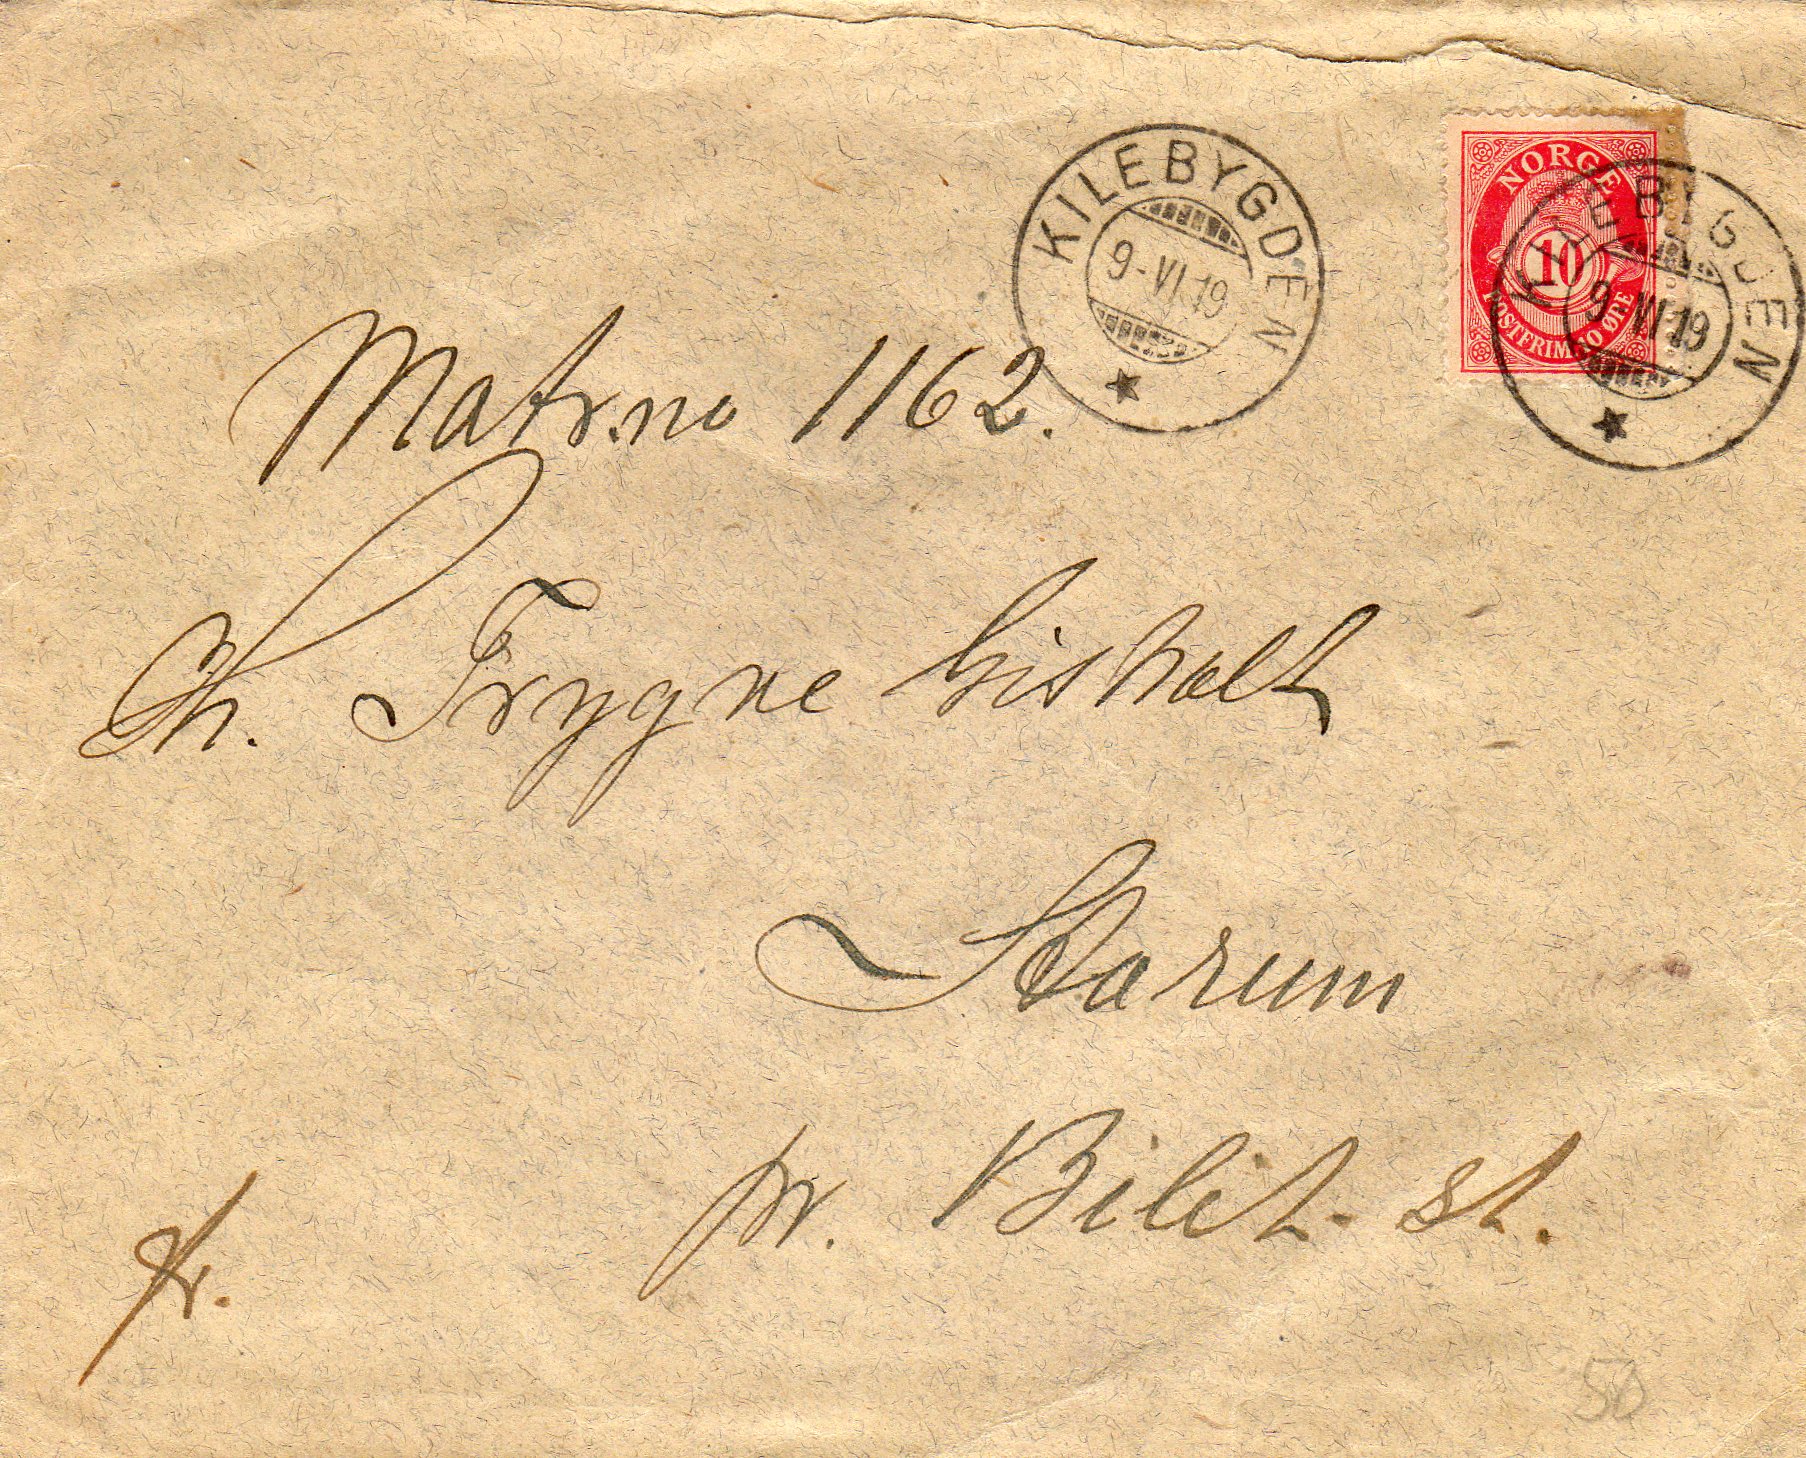 KILEBYGDEN
9-VI.19
NORGE
10
POSTFRIM. 10 ØRE
KILEBYGDEN
9-VI.19
Matr.no 1162.
Hr. Trygve Gisholt
Starum
pr. Bilit. st.
fr.
50